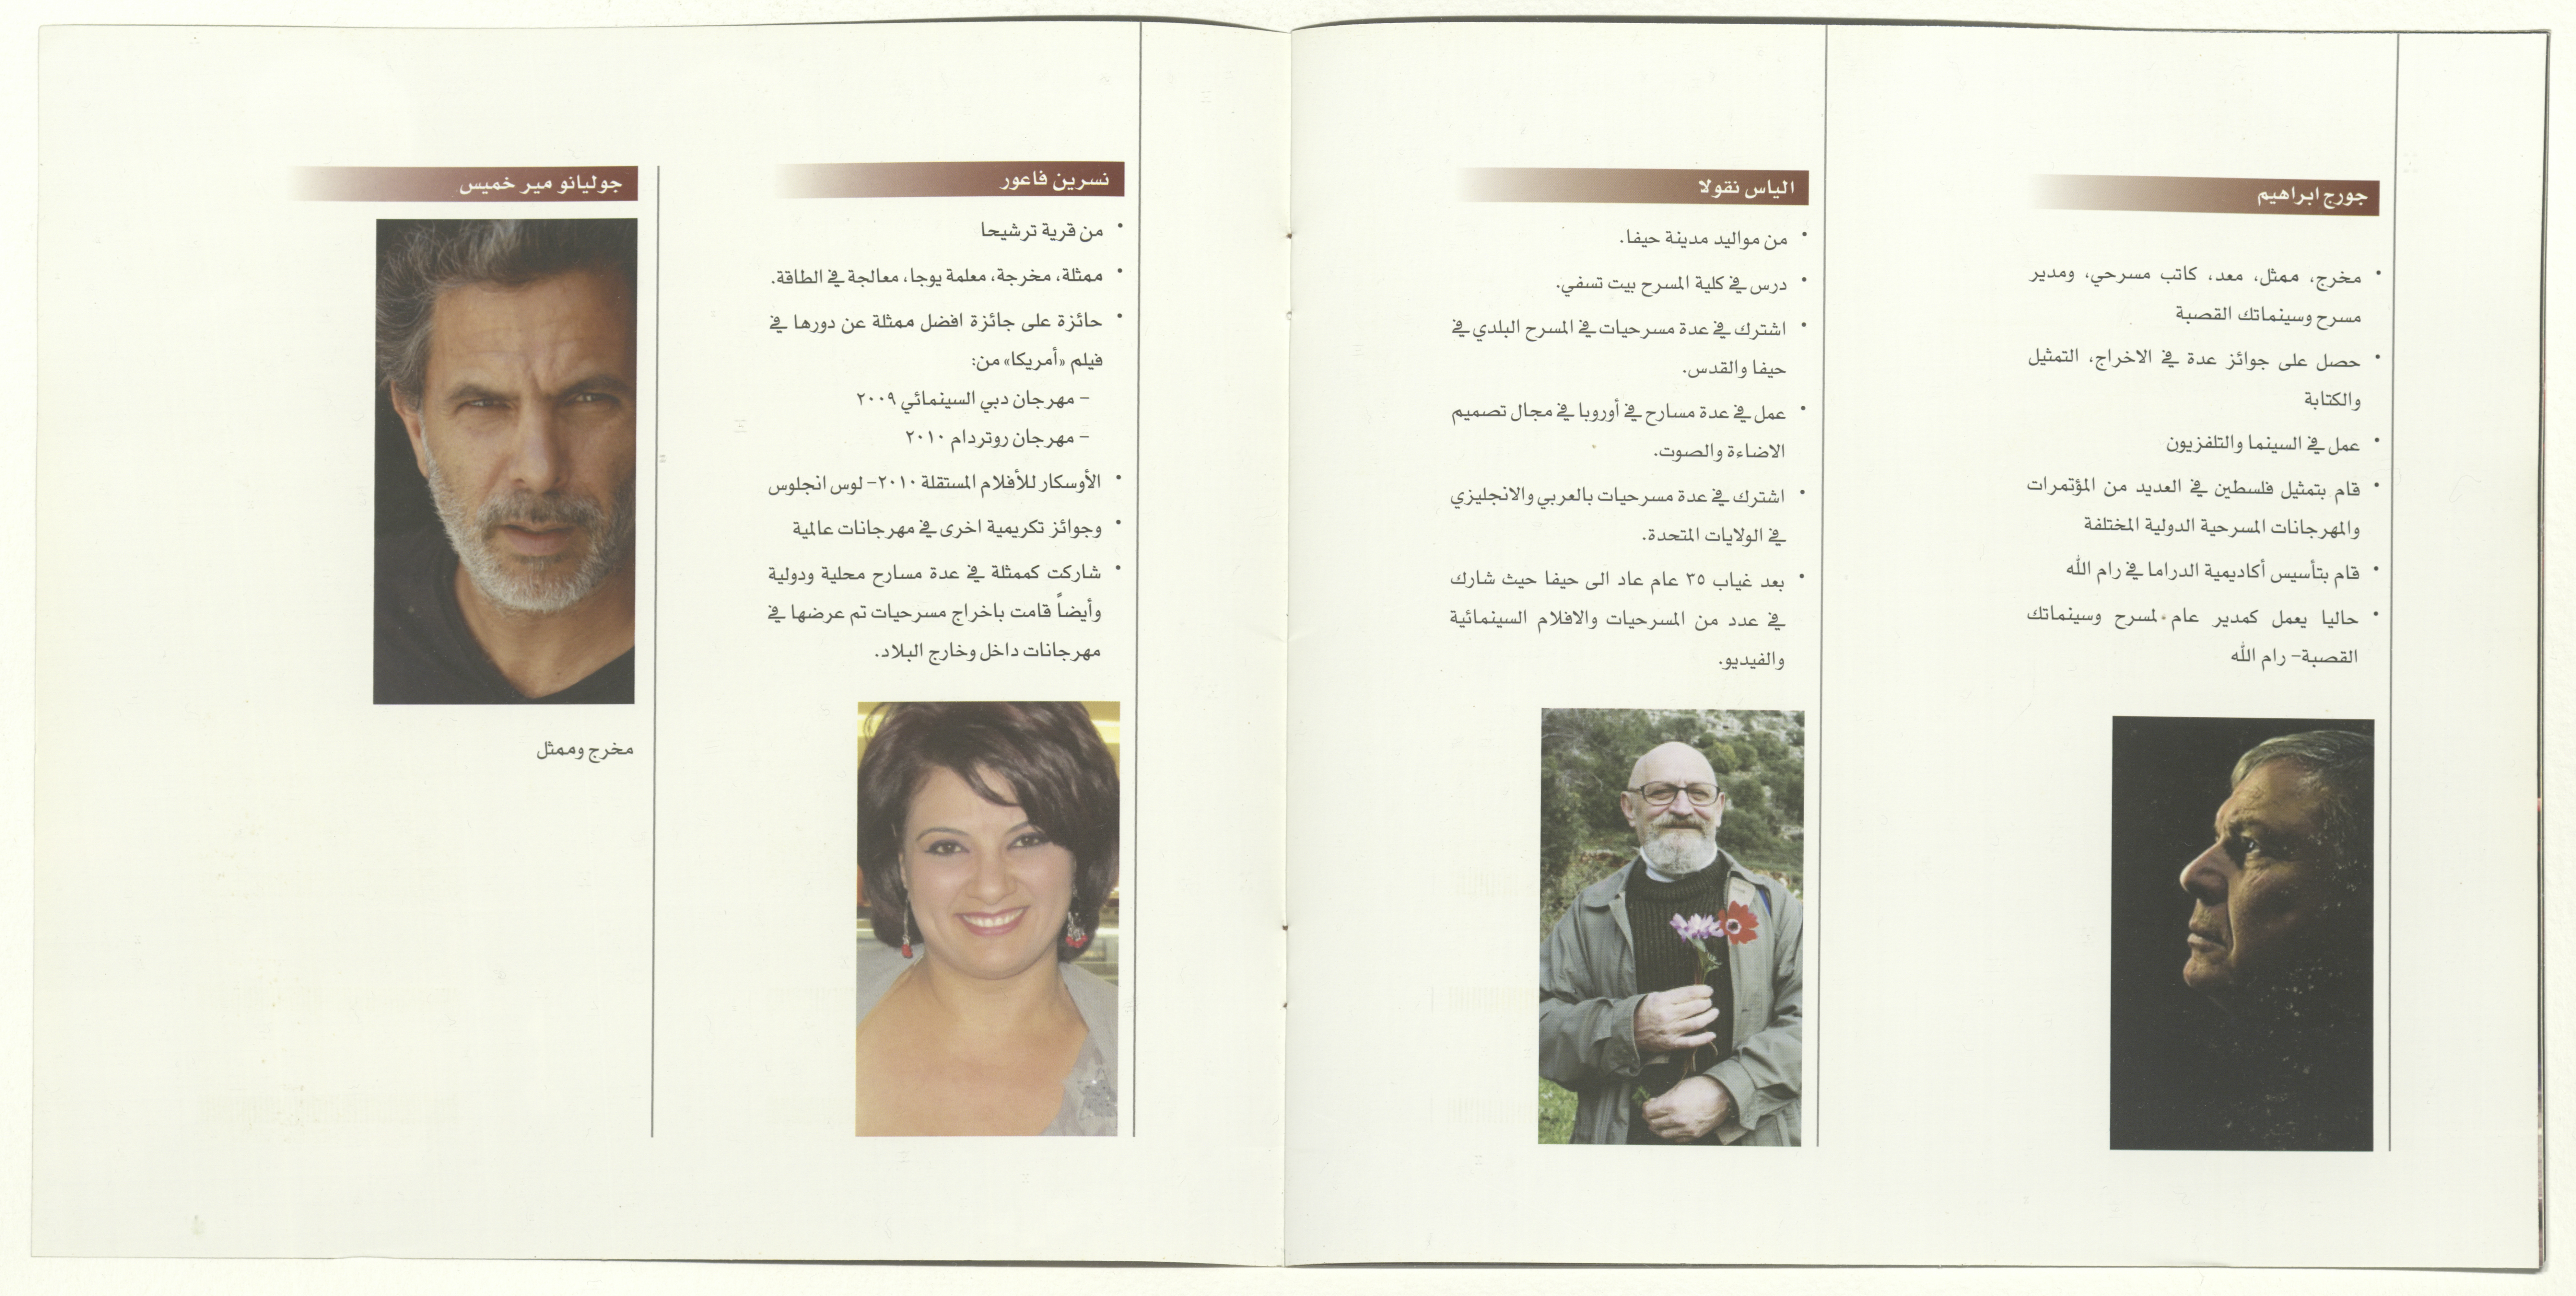 جورج ابراهيم
• مخرج، ممثل، معد، كاتب مسرحي، ومدير
مسرح وسينماتك القصبة
• حصل على جوائز عدة في الاخراج، التمثيل
والكتابة
• عمل في السينما والتلفزيون
• قام بتمثيل فلسطين في العديد من المؤتمرات
والمهرجانات المسرحية الدولية المختلفة
• قام بتأسيس أكاديمية الدراما في رام الله
• حاليا يعمل كمدير عام لمسرح وسينماتك
القصبة– رام الله
الياس نقولا
• من مواليد مدينة حيفا.
• درس في كلية المسرح بيت تسفي.
• اشترك في عدة مسرحيات في المسرح البلدي في
حيفا والقدس.
• عمل في عدة مسارح في أوروبا في مجال تصميم
الاضاءة والصوت.
• اشترك في عدة مسرحيات بالعربي والانجليزي
في الولايات المتحدة.
• بعد غياب ٣٥ عام عاد الى حيفا حيث شارك
في عدد من المسرحيات والافلام السينمائية
والفيديو.
نسرين فاعور
• من قرية ترشيحا
• ممثلة، مخرجة، معلمة يوجا، معالجة في الطاقة.
• حائزة على جائزة افضل ممثلة عن دورها في
فيلم «أمريكا» من:
– مهرجان دبي السينمائي ٢٠٠٩
– مهرجان روتردام ٢٠١٠
• الأوسكار للأفلام المستقلة ٢٠١٠– لوس انجلوس
• وجوائز تكريمية اخرى في مهرجانات عالمية
• شاركت كممثلة في عدة مسارح محلية ودولية
وأيضاً قامت باخراج مسرحيات تم عرضها في
مهرجانات داخل وخارج البلاد.
جوليانو مير خميس
مخرج وممثل